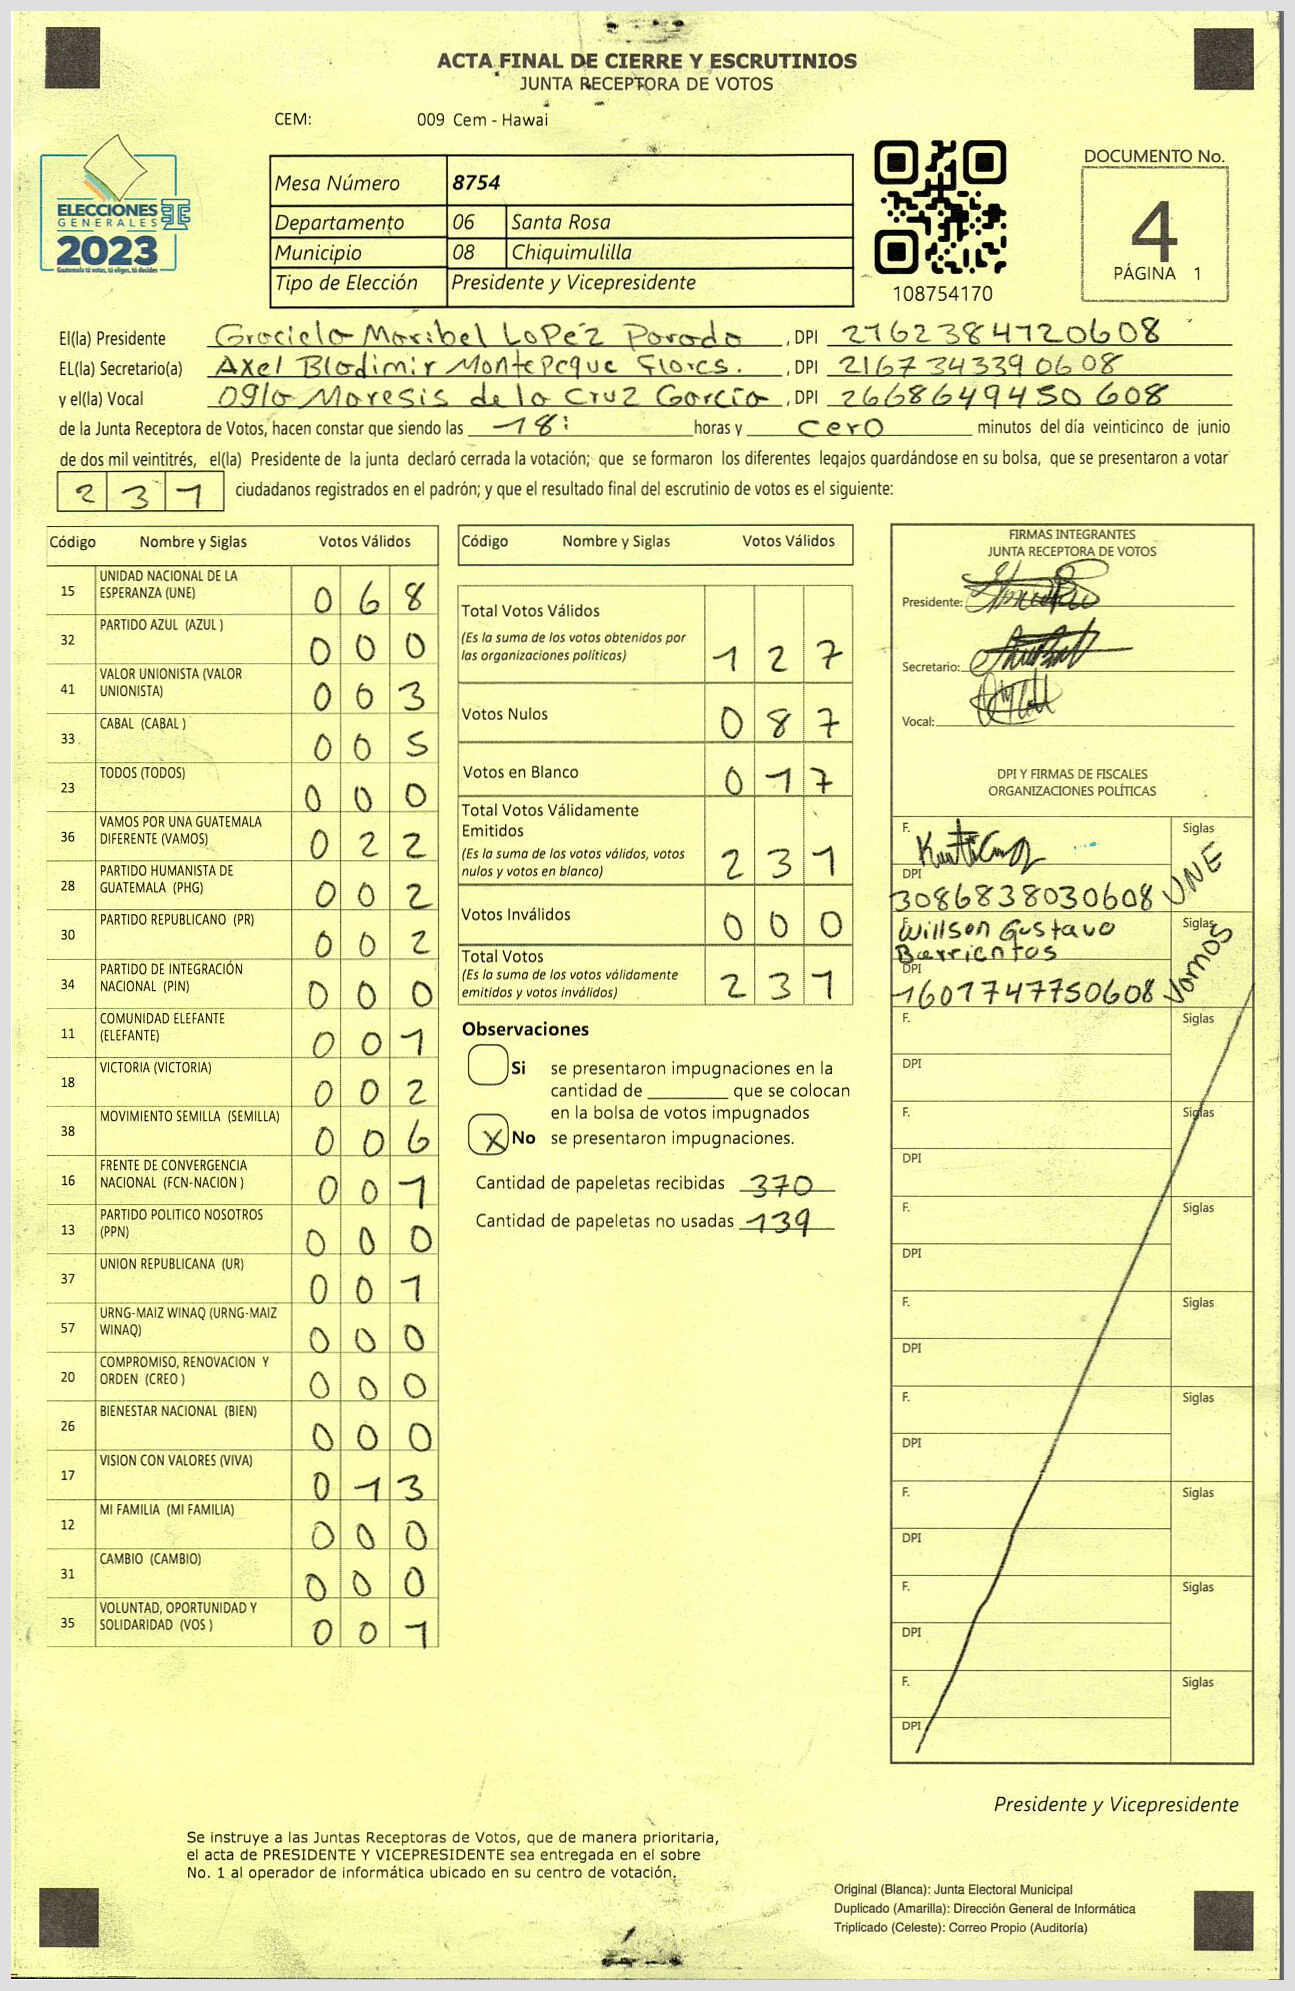 ACTA FINAL DE CIERRE Y ESCRUTINIOS
JUNTA RECEPTORA DE VOTOS
CEM: 009 Cem - Hawai
ELECCIONES
GENERALES
2023
Guatemala tú votas, tú eliges, tú decides
Mesa Número 8754
Departamento 06 Santa Rosa
Municipio 08 Chiquimulilla
Tipo de Elección Presidente y Vicepresidente
108754170
DOCUMENTO No.
4
PÁGINA 1
El(la) Presidente Graciela Maribel Lopéz Parada, DPI 2162384720608
EL(la) Secretario(a) Axel Bladimir Montepeque Flores., DPI 2167343390608
y el(la) Vocal Maresis de la Cruz García, DPI 2668649450608
de la Junta Receptora de Votos, hacen constar que siendo las 18: horas y cero minutos del día veinticinco de junio
de dos mil veintitrés, el(la) Presidente de la junta declaró cerrada la votación; que se formaron los diferentes legajos guardándose en su bolsa, que se presentaron a votar
231 ciudadanos registrados en el padrón; y que el resultado final del escrutinio de votos es el siguiente:
Código Nombre y Siglas Votos Válidos
15 UNIDAD NACIONAL DE LA
ESPERANZA (UNE) 0 6 8
32 PARTIDO AZUL (AZUL ) 0 0 0
41 VALOR UNIONISTA (VALOR
UNIONISTA) 0 0 3
33 CABAL (CABAL ) 0 0 5
23 TODOS (TODOS) 0 0 0
36 VAMOS POR UNA GUATEMALA
DIFERENTE (VAMOS) 0 2 2
28 PARTIDO HUMANISTA DE
GUATEMALA (PHG) 0 0 2
30 PARTIDO REPUBLICANO (PR) 0 0 2
34 PARTIDO DE INTEGRACIÓN
NACIONAL (PIN) 0 0 0
11 COMUNIDAD ELEFANTE
(ELEFANTE) 0 0 1
18 VICTORIA (VICTORIA) 0 0 2
38 MOVIMIENTO SEMILLA (SEMILLA) 0 0 6
16 FRENTE DE CONVERGENCIA
NACIONAL (FCN-NACION ) 0 0 1
13 PARTIDO POLITICO NOSOTROS
(PPN) 0 0 0
37 UNION REPUBLICANA (UR) 0 0 1
57 URNG-MAIZ WINAQ (URNG-MAIZ
WINAQ) 0 0 0
20 COMPROMISO, RENOVACION Y
ORDEN (CREO ) 0 0 0
26 BIENESTAR NACIONAL (BIEN) 0 0 0
17 VISION CON VALORES (VIVA) 0 1 3
12 MI FAMILIA (MI FAMILIA) 0 0 0
31 CAMBIO (CAMBIO) 0 0 0
35 VOLUNTAD, OPORTUNIDAD Y
SOLIDARIDAD (VOS ) 0 0 1
Código Nombre y Siglas Votos Válidos
Total Votos Válidos
(Es la suma de los votos obtenidos por
las organizaciones políticas) 1 2 7
Votos Nulos 0 8 7
Votos en Blanco 0 1 7
Total Votos Válidamente
Emitidos
(Es la suma de los votos válidos, votos
nulos y votos en blanco) 2 3 1
Votos Inválidos 0 0 0
Total Votos
(Es la suma de los votos válidamente
emitidos y votos inválidos) 2 3 1
Observaciones
Si se presentaron impugnaciones en la
cantidad de ________ que se colocan
en la bolsa de votos impugnados
X No se presentaron impugnaciones.
Cantidad de papeletas recibidas 370
Cantidad de papeletas no usadas 139
FIRMAS INTEGRANTES
JUNTA RECEPTORA DE VOTOS
Presidente:
Secretario:
Vocal:
DPI Y FIRMAS DE FISCALES
ORGANIZACIONES POLÍTICAS
F. Siglas
DPI
3086838030608 UNE
F. Willson Gustavo Siglas
Barrientos
DPI
1601747750608 Vamos
F. Siglas
DPI
F. Siglas
DPI
F. Siglas
DPI
F. Siglas
DPI
F. Siglas
DPI
F. Siglas
DPI
F. Siglas
DPI
F. Siglas
DPI
Presidente y Vicepresidente
Se instruye a las Juntas Receptoras de Votos, que de manera prioritaria,
el acta de PRESIDENTE Y VICEPRESIDENTE sea entregada en el sobre
No. 1 al operador de informática ubicado en su centro de votación.
Original (Blanca): Junta Electoral Municipal
Duplicado (Amarilla): Dirección General de Informática
Triplicado (Celeste): Correo Propio (Auditoría)